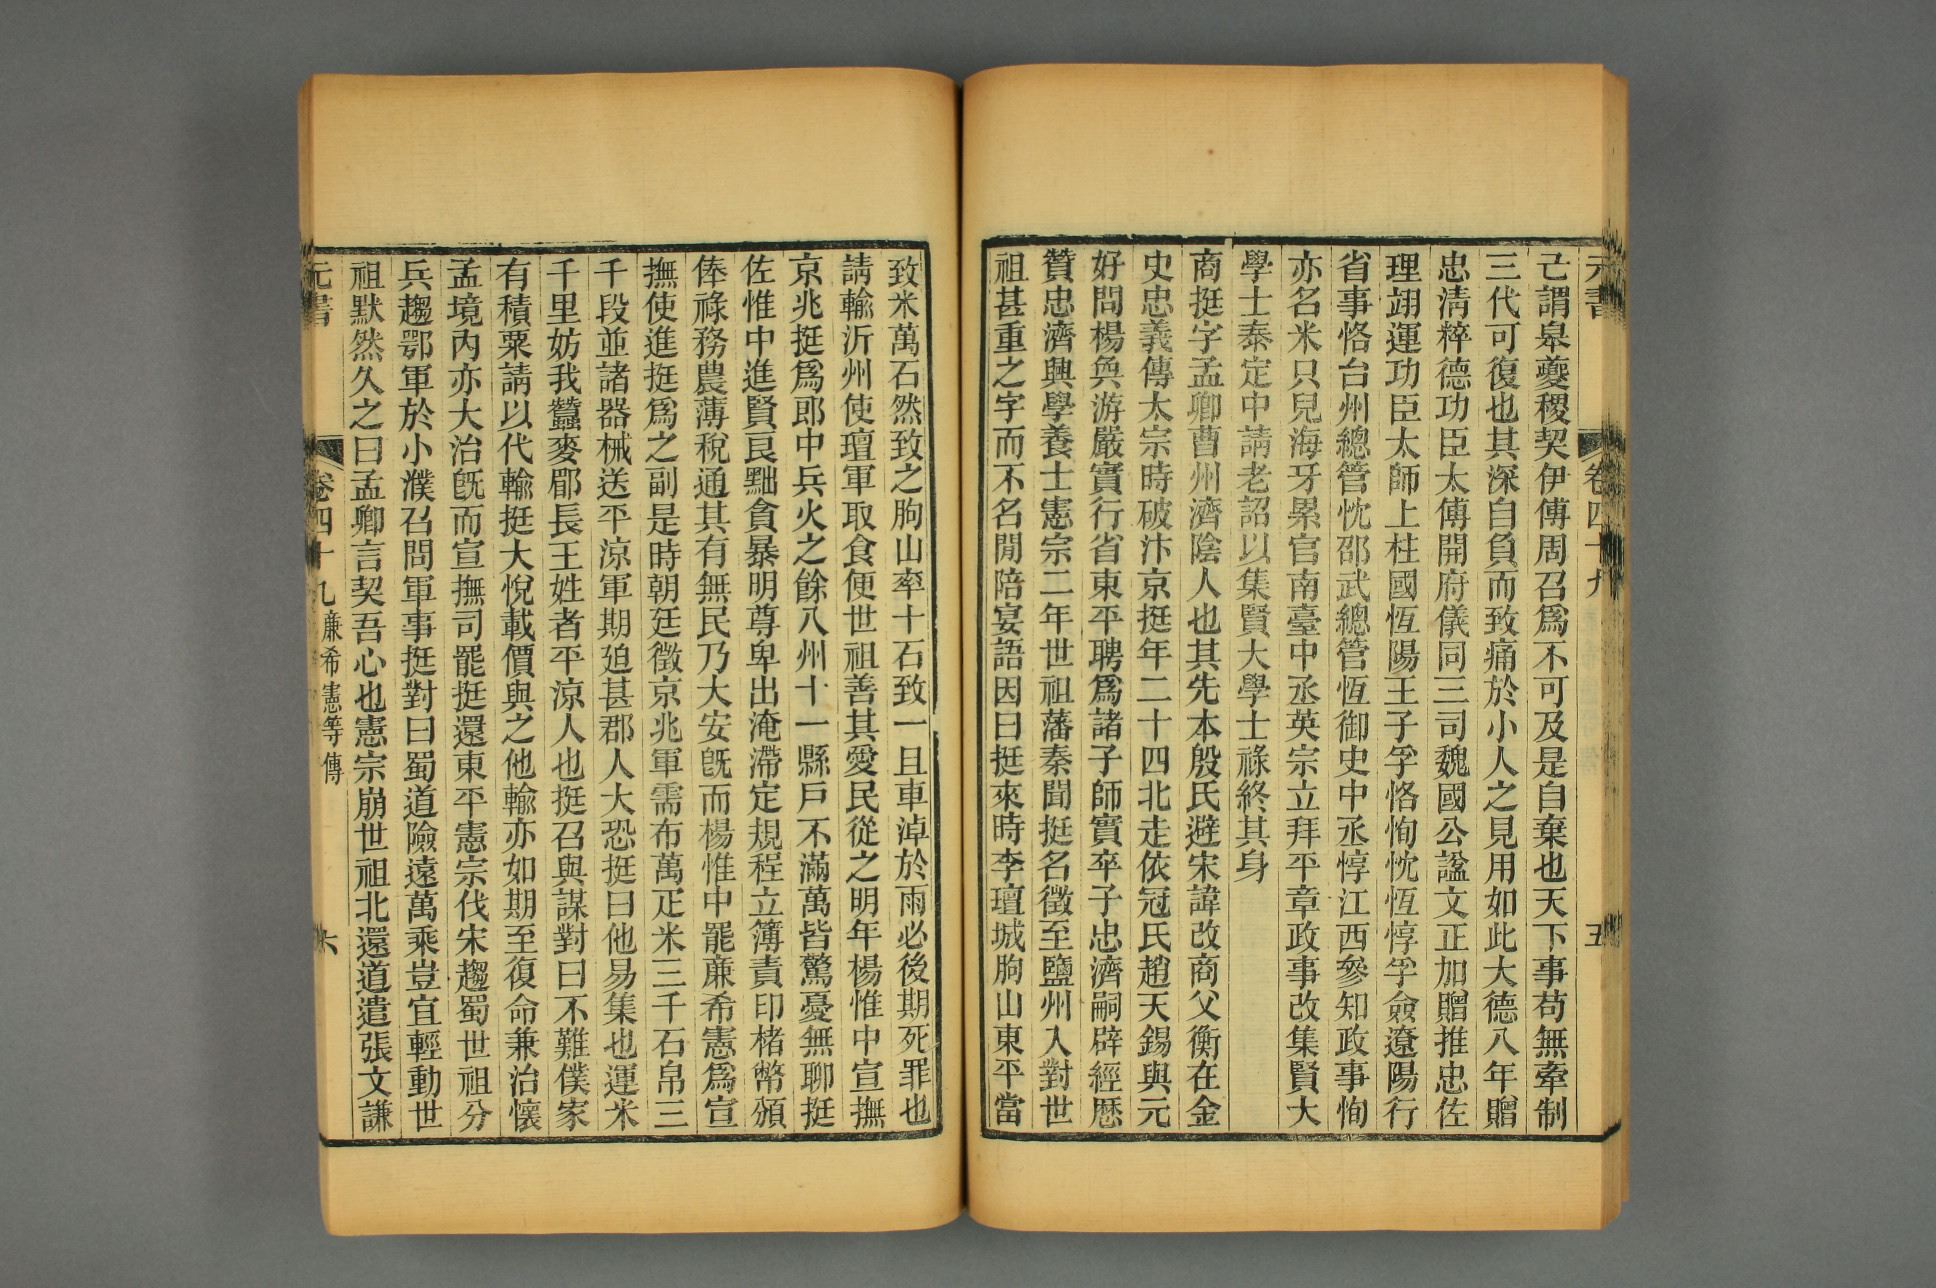 元書
卷四十九
五
已謂皋夔稷契伊傅周召爲不可及是自棄也天下事苟無牽制
三代可復也其深自負而致痛於小人之見用如此大德八年贈
忠淸粹德功臣太傅開府儀同三司魏國公諡文正加贈推忠佐
理翊運功臣太師上柱國恆陽王子孚恪恂忱恆惇孚僉遼陽行
省事恪台州總管忱邵武總管恆御史中丞惇江西參知政事恂
亦名米只兒海牙累官南臺中丞英宗立拜平章政事改集賢大
學士泰定中請老詔以集賢大學士祿終其身
商挺字孟卿曹州濟陰人也其先本殷氏避宋諱改商父衡在金
史忠義傳太宗時破汴京挺年二十四北走依冠氏趙天錫與元
好問楊奐游嚴實行省東平聘爲諸子師實卒子忠濟嗣辟經歷
贊忠濟興學養士憲宗二年世祖藩秦聞挺名徵至鹽州入對世
祖甚重之字而不名閒陪宴語因曰挺來時李璮城朐山東平當
致米萬石然致之朐山率十石致一且車淖於雨必後期死罪也
請輸沂州使璮軍取食便世祖善其愛民從之明年楊惟中宣撫
京兆挺爲郎中兵火之餘八州十一縣戶不滿萬皆驚憂無聊挺
佐惟中進賢良黜貪暴明尊卑出淹滯定規程立簿責印楮幣頒
俸祿務農薄稅通其有無民乃大安旣而楊惟中罷廉希憲爲宣
撫使進挺爲之副是時朝廷徵京兆軍需布萬疋米三千石帛三
千段並諸器械送平涼軍期廹甚郡人大恐挺曰他易集也運米
千里妨我蠶麥郿長王姓者平涼人也挺召與謀對曰不難僕家
有積粟請以代輸挺大悅載價與之他輸亦如期至復命兼治懷
孟境內亦大治旣而宣撫司罷挺還東平憲宗伐宋趨蜀世祖分
兵趨鄂軍於小濮召問軍事挺對曰蜀道險遠萬乘豈宜輕動世
祖默然久之曰孟卿言契吾心也憲宗崩世祖北還道遣張文謙
元書
卷四十九廉希憲等傳
六